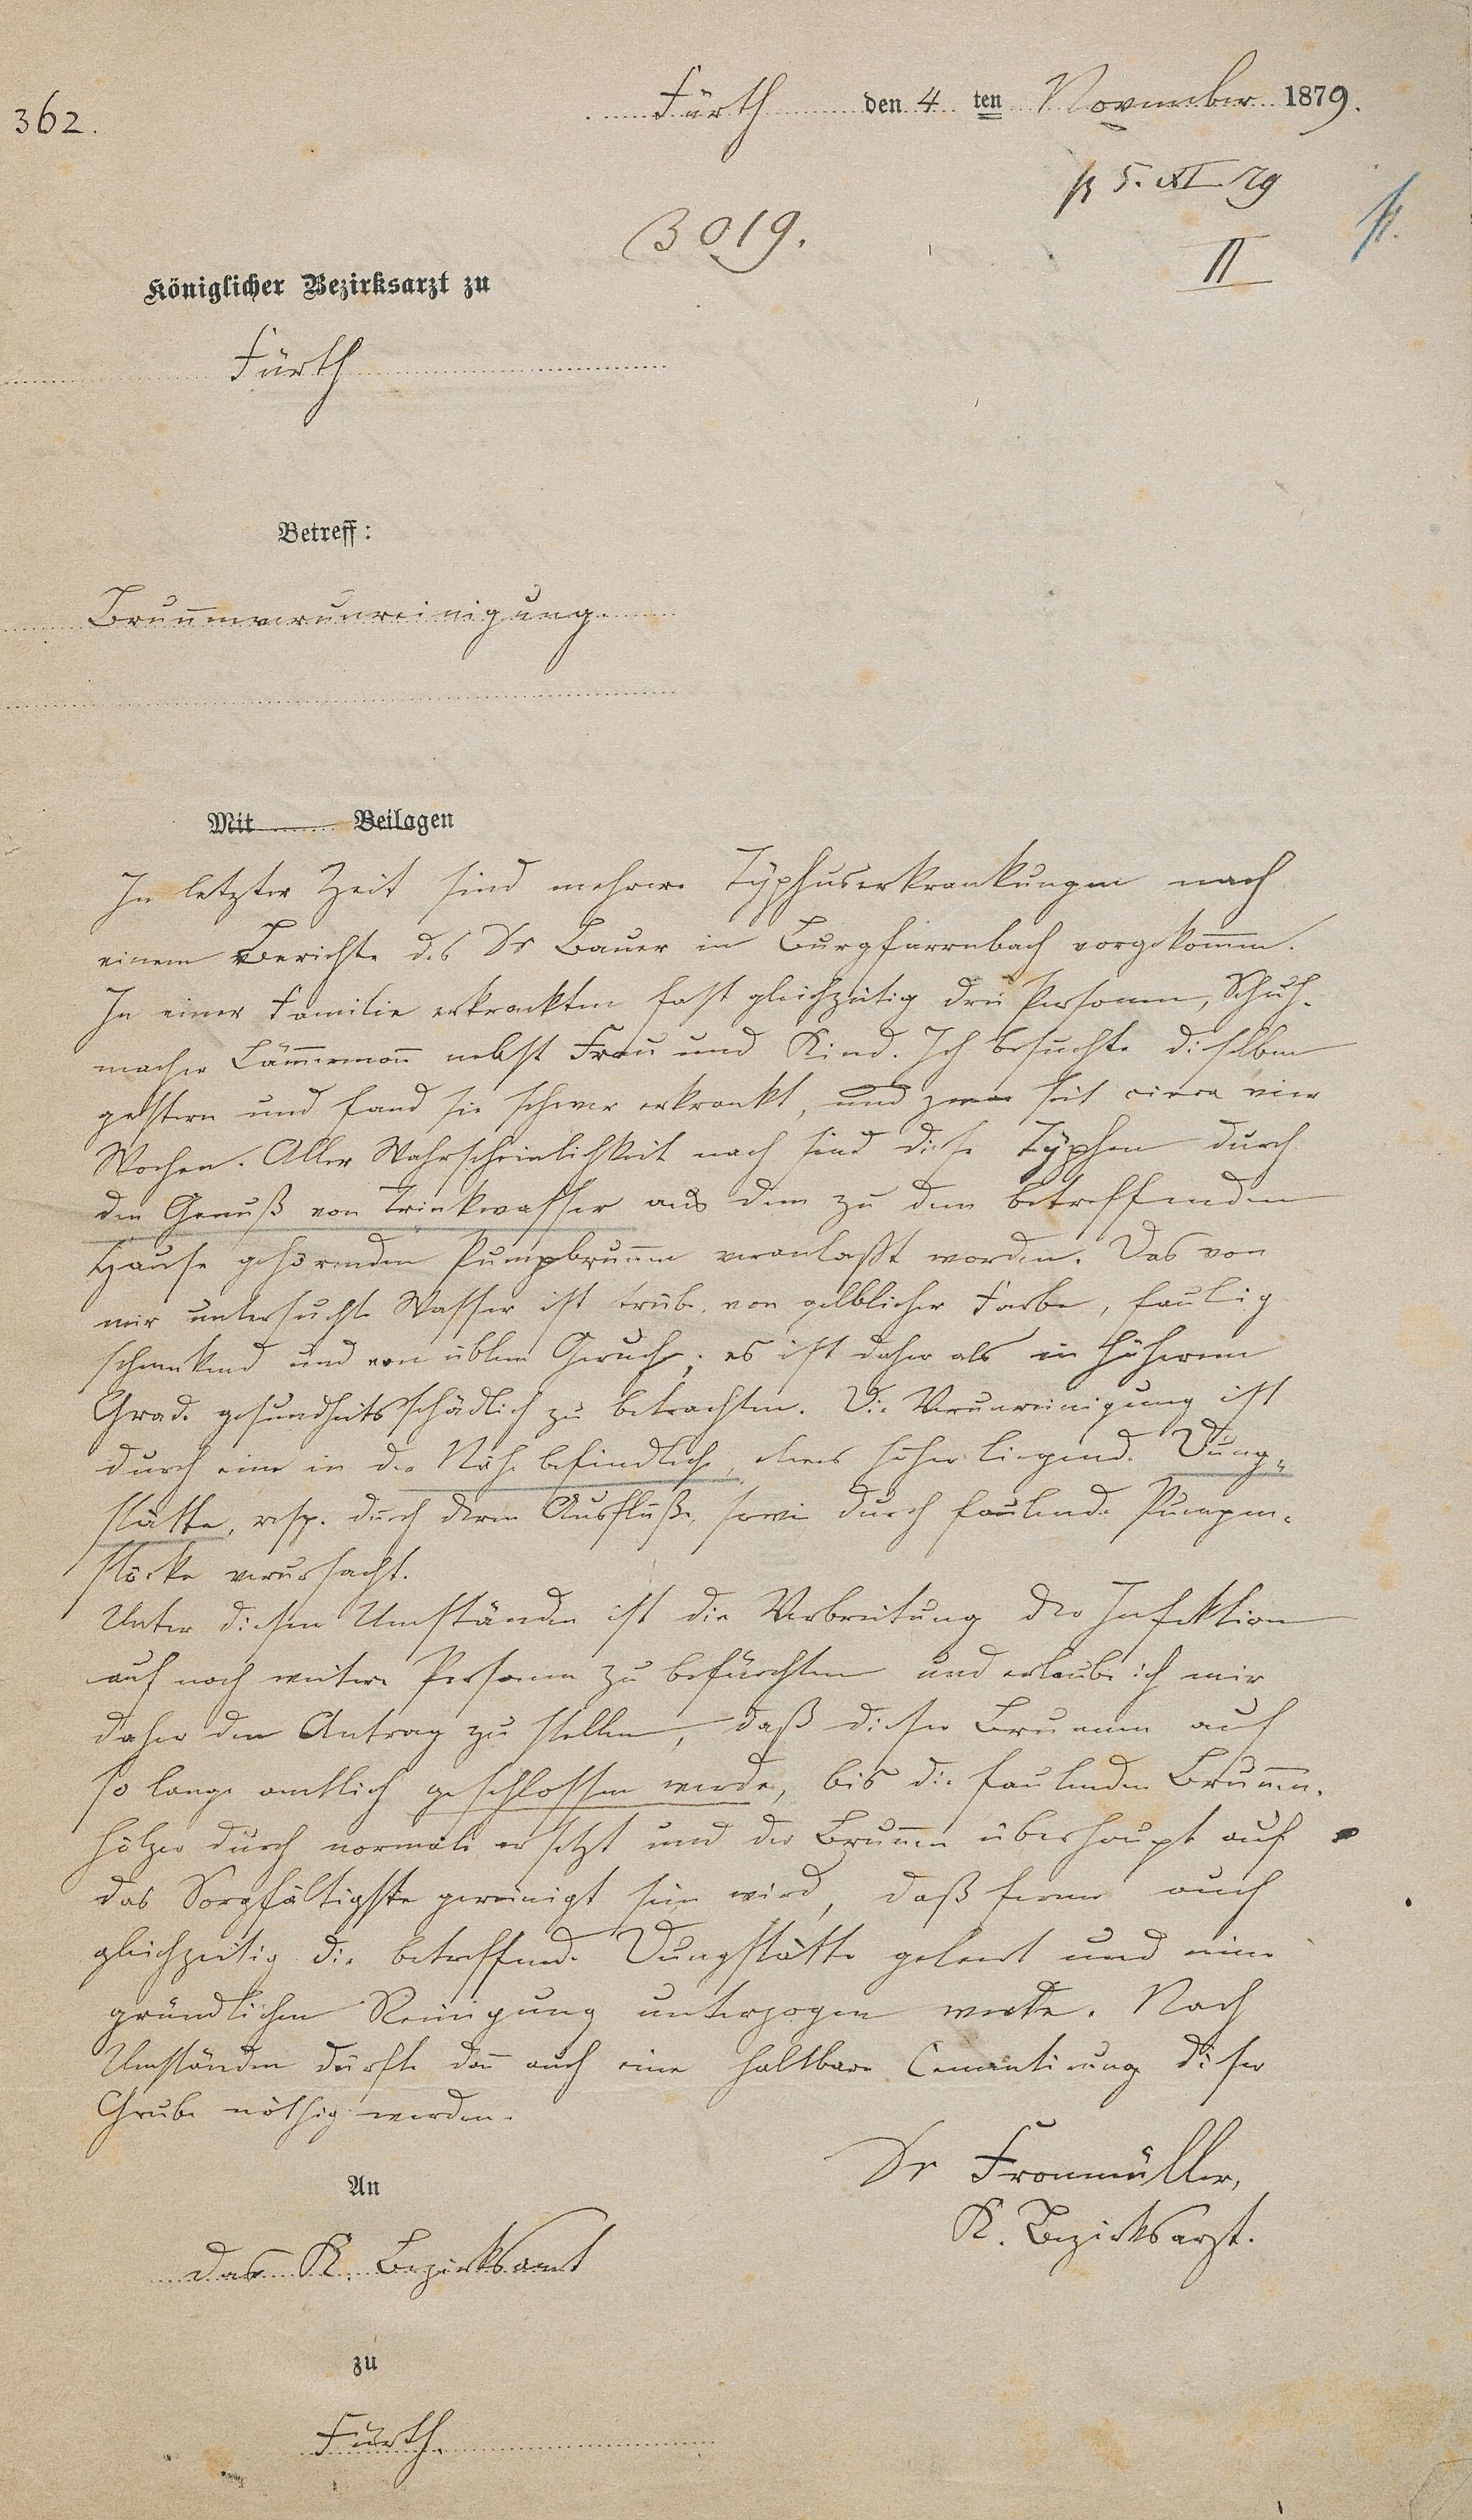 362.
Fürth den 4 ten November 1879.
5. XI. 79
3019.
II
Königlicher Bezirksarzt zu
Fürth
Betreff:
Brunnenverunreinigung.
Mit Beilagen
In letzter Zeit sind mehrere Typhuserkrankungen nach
einem Berichte des Dr Bauer in Burgfarrnbach vorgekommen.
In einer Familie erkrankten fast gleichzeitig drei Personen, Schuh-
macher Lämmermann nebst Frau und Kind. Ich besuchte dieselben
gestern und fand sie schwer erkrankt, und zwar seit circa vier
Wochen. Aller Wahrscheinlichkeit nach sind diese Typhen durch
den Genuß von Trinkwasser aus dem zu dem betreffenden
Hause gehörenden Pumpbrunnen veranlaßt worden. Das von
mir untersuchte Wasser ist trübe, von gelblicher Farbe, faulig
schmeckend und von üblem Geruch; es ist daher als in höherem
Grade gesundheitsschädlich zu betrachten. Die Verunreinigung ist
durch eine in der Nähe befindliche, etwas höher liegende Dung-
stätte, resp. durch deren Ausflüsse, sowie durch faulende Pumpen-
stöcke verursacht.
Unter diesen Umständen ist die Verbreitung der Infektion
auf noch weitere Personen zu befürchten und erlaube ich mir
daher den Antrag zu stellen, daß dieser Brunnen auf
so lange amtlich geschlossen werde, bis die faulenden Brunnen-
hölzer durch normale ersetzt und der Brunnen überhaupt auf
das Sorgfältigste gereinigt sein wird, daß ferner auch
gleichzeitig die betreffende Dungstätte geleert und einer
gründlichen Reinigung unterzogen werde. Nach
Umständen dürfte dann auch eine haltbare Cementirung dieser
Grube nöthig werden.
Dr Fronmüller,
K. Bezirksarzt.
An
das K. Bezirksamt
zu
Fürth.